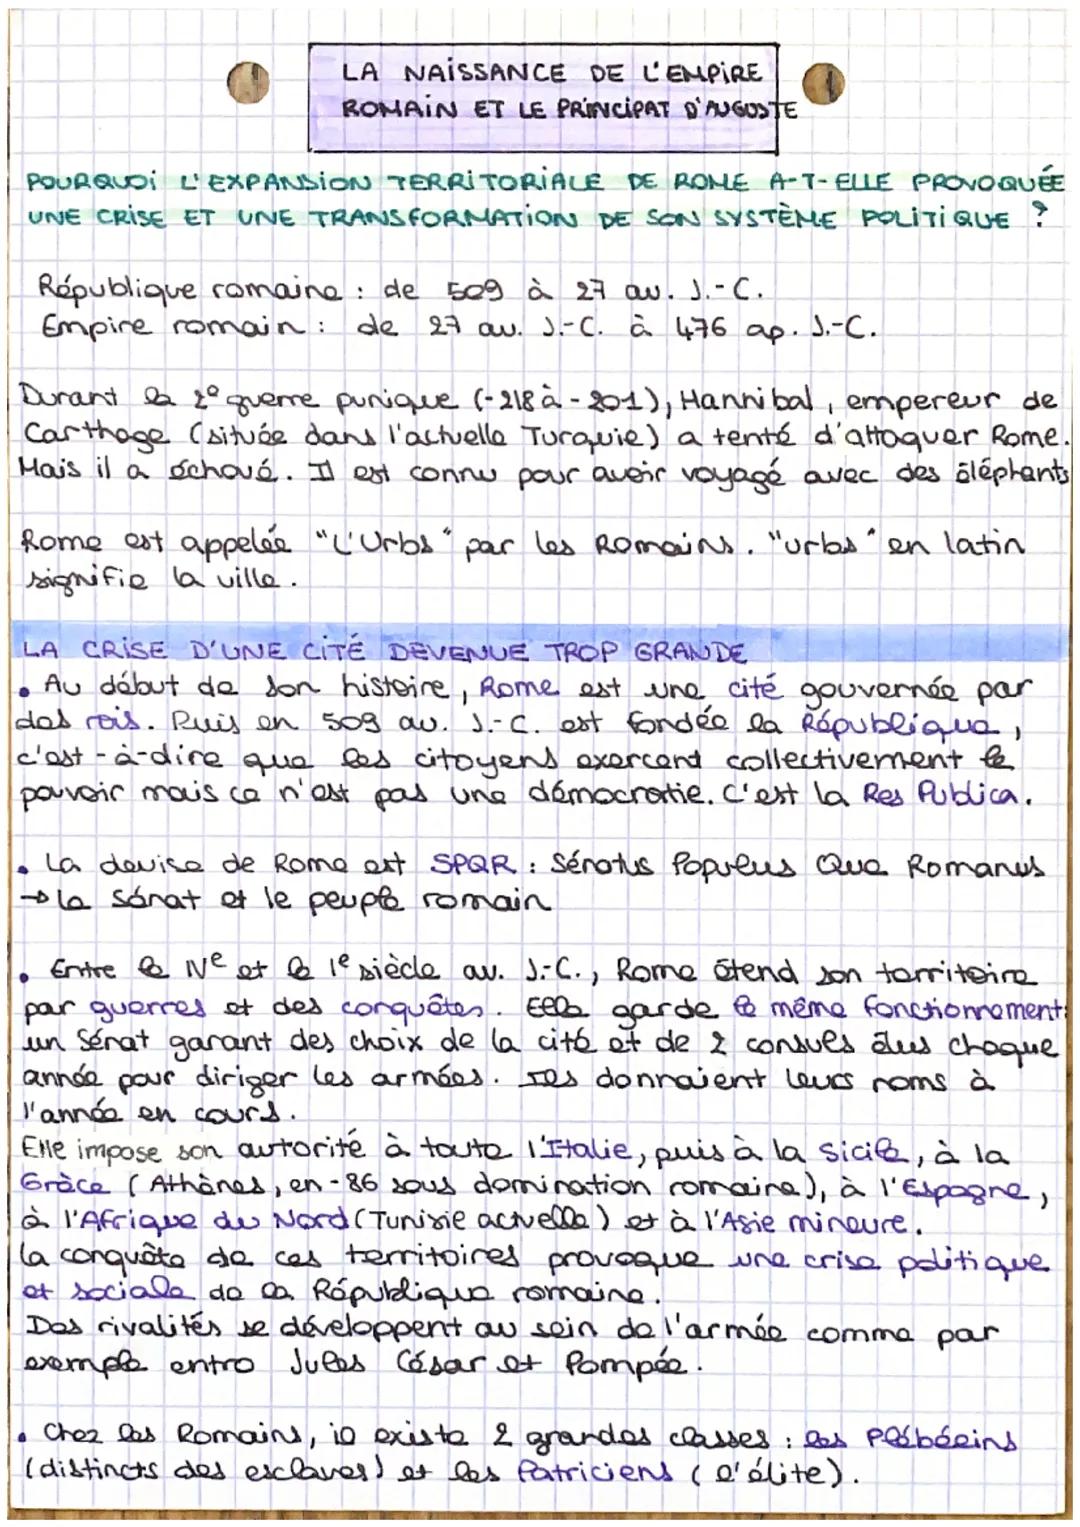 LA NAISSANCE DE L'EMPIRE
ROMAIN ET LE PRINCIPAT D'AUGUSTE
POURQUOI L'EXPANSION TERRITORIALE DE ROME A-T-ELLE PROVOQUÉE
UNE CRISE ET UNE TRANSFORMATION DE SON SYSTÈME POLITIQUE ?
République romaine : de 509 à 27 av. J.-C.
Empire romain : de 27 av. J.-C. à 476 ap. J.-C.
Durant la 2e guerre punique (-218 à -201), Hannibal, empereur de
Carthage (située dans l'actuelle Turquie) a tenté d'attaquer Rome.
Mais il a échoué. Il est connu pour avoir voyagé avec des éléphants
Rome est appelée "L'Urbs" par les Romains. "urbs" en latin
signifie la ville.
LA CRISE D'UNE CITÉ DEVENUE TROP GRANDE
• Au début de son histoire, Rome est une cité gouvernée par
des rois. Puis en 509 av. J.-C. est fondée la République,
c'est-à-dire que les citoyens exercent collectivement le
pouvoir mais ce n'est pas une démocratie. C'est la Res Publica.
• La devise de Rome est SPQR : Sénatus Populus Que Romanus
→ le sénat et le peuple romain
• Entre le IVe et le 1e siècle av. J.-C., Rome étend son territoire
par guerres et des conquêtes. Elle garde le même fonctionnement:
un Sénat garant des choix de la cité et de 2 consuls élus chaque
année pour diriger les armées. Ils donnaient leurs noms à
l'année en cours.
Elle impose son autorité à toute l'Italie, puis à la Sicile, à la
Grèce (Athènes, en -86 sous domination romaine), à l'Espagne,
à l'Afrique du Nord (Tunisie actuelle) et à l'Asie mineure.
la conquête de ces territoires provoque une crise politique
et sociale de la République romaine.
Des rivalités se développent au sein de l'armée comme par
exemple entre Jules César et Pompée.
• Chez les Romains, il existe 2 grandes classes : les Plébéeins
(distincts des esclaves) et les Patriciens (l'élite).